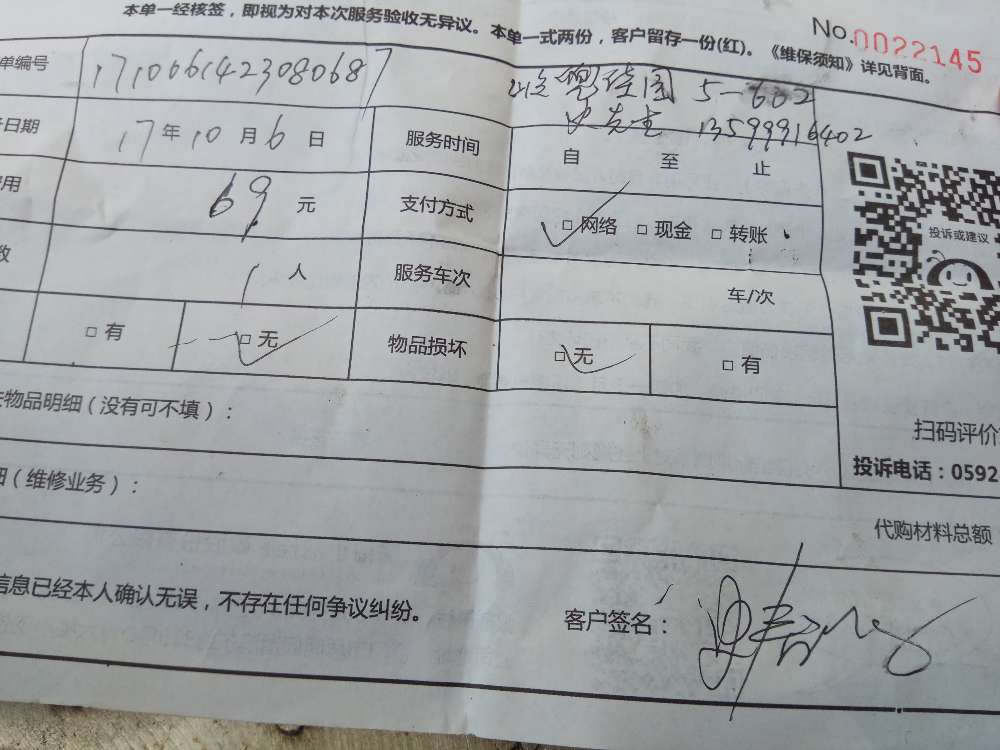 本单一经核签，即视为对本次服务验收无异议。本单一式两份，客户留存一份(红)。《维保须知》详见背面。
No.0022145
单编号 1710061423080687
佳园 5-602
史先生 13599916402
日期 17年10月6日 服务时间 自 至 止
费用 69元 支付方式 □网络 □现金 □转账
数 1人 服务车次 车/次
□有 □无 物品损坏 □无 □有
投诉或建议
物品明细（没有可不填）：
扫码评价
投诉电话：0592
细（维修业务）：
代购材料总额
信息已经本人确认无误，不存在任何争议纠纷。
客户签名：